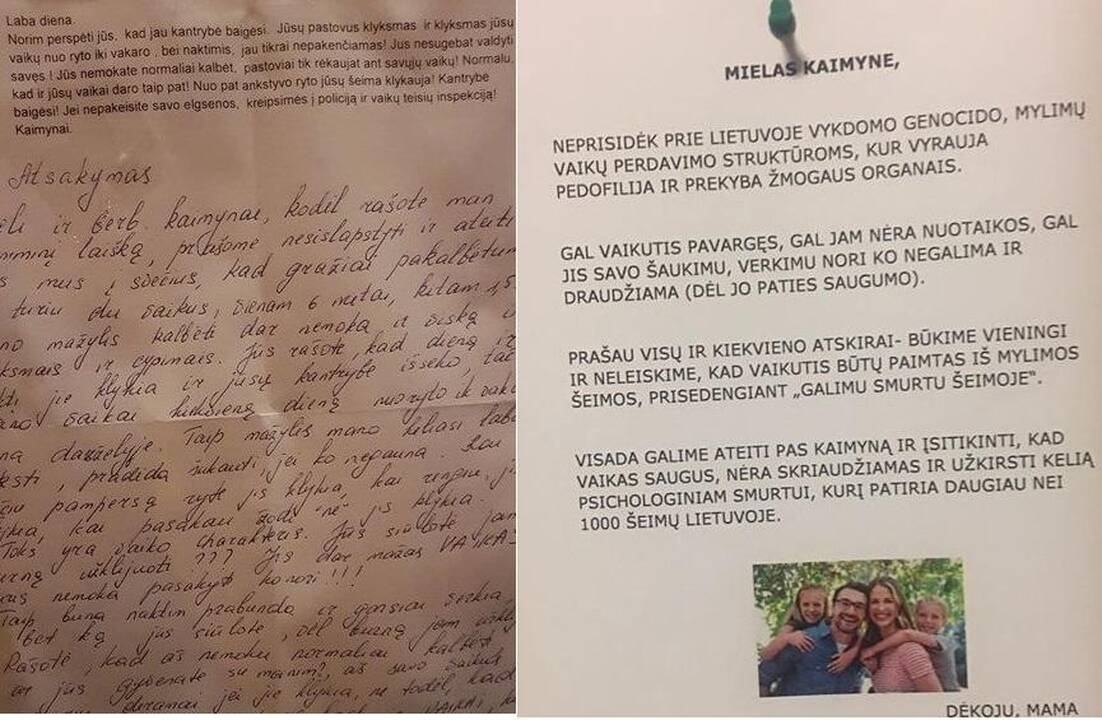 Laba diena.
Norim perspėti jūs, kad jau kantrybė baigėsi. Jūsų pastovus klyksmas ir klyksmas jūsų
vaikų nuo ryto iki vakaro , bei naktimis, jau tikrai nepakenčiamas! Jus nesugebat valdyti
savęs ! Jūs nemokate normaliai kalbėt, pastoviai tik rėkaujat ant savųjų vaikų! Normalu,
kad ir jūsų vaikai daro taip pat! Nuo pat ankstyvo ryto jūsų šeima klykauja! Kantrybė
baigėsi! Jei nepakeisite savo elgsenos, kreipsimės į policiją ir vaikų teisių inspekciją!
Kaimynai.
Atsakymas
ir Gerb. kaimynai, kodėl rašote man
laišką, prašome nesislapstyti ir ateiti
mus į svečius, kad gražiai pakalbėtum
turiu du vaikus, vienam 6 metai, kitam 1,5
mažylis kalbėti dar nemoka ir viską
ir cypimais. Jūs rašote, kad dieną ir
jie klykia ir jūsų kantrybė išseko, tač
vaikai kiekvieną dieną nuo ryto ik vaka
darželyje. Taip mažylis mano keliasi
pradeda šūkauti, jei ko negauna. Kai
pampersą ryte jis klykia, kai rengiu, ji
kai pasakau žodį "ne" jis klykia.
Toks yra vaiko charakteris. Jūs siūlote jam
burną užklijuoti ??? Jis dar mažas VAIKAS
nemoka pasakyti ko nori!!!
Taip būna naktim prabunda ir garsiai verkia,
Bet ką jus siūlote, vėl burną jam užkli
Rašote, kad aš nemoku normaliai kalbėti
ar jūs gyvenate su manim?, aš savo vaikus
jei jie klykia, ne todėl, kad
MIELAS KAIMYNE,
NEPRISIDĖK PRIE LIETUVOJE VYKDOMO GENOCIDO, MYLIMŲ
VAIKŲ PERDAVIMO STRUKTŪROMS, KUR VYRAUJA
PEDOFILIJA IR PREKYBA ŽMOGAUS ORGANAIS.
GAL VAIKUTIS PAVARGĘS, GAL JAM NĖRA NUOTAIKOS, GAL
JIS SAVO ŠAUKIMU, VERKIMU NORI KO NEGALIMA IR
DRAUDŽIAMA (DĖL JO PATIES SAUGUMO).
PRAŠAU VISŲ IR KIEKVIENO ATSKIRAI- BŪKIME VIENINGI
IR NELEISKIME, KAD VAIKUTIS BŪTŲ PAIMTAS IŠ MYLIMOS
ŠEIMOS, PRISEDENGIANT „GALIMU SMURTU ŠEIMOJE“.
VISADA GALIME ATEITI PAS KAIMYNĄ IR ĮSITIKINTI, KAD
VAIKAS SAUGUS, NĖRA SKRIAUDŽIAMAS IR UŽKIRSTI KELIĄ
PSICHOLOGINIAM SMURTUI, KURĮ PATIRIA DAUGIAU NEI
1000 ŠEIMŲ LIETUVOJE.
DĖKOJU, MAMA